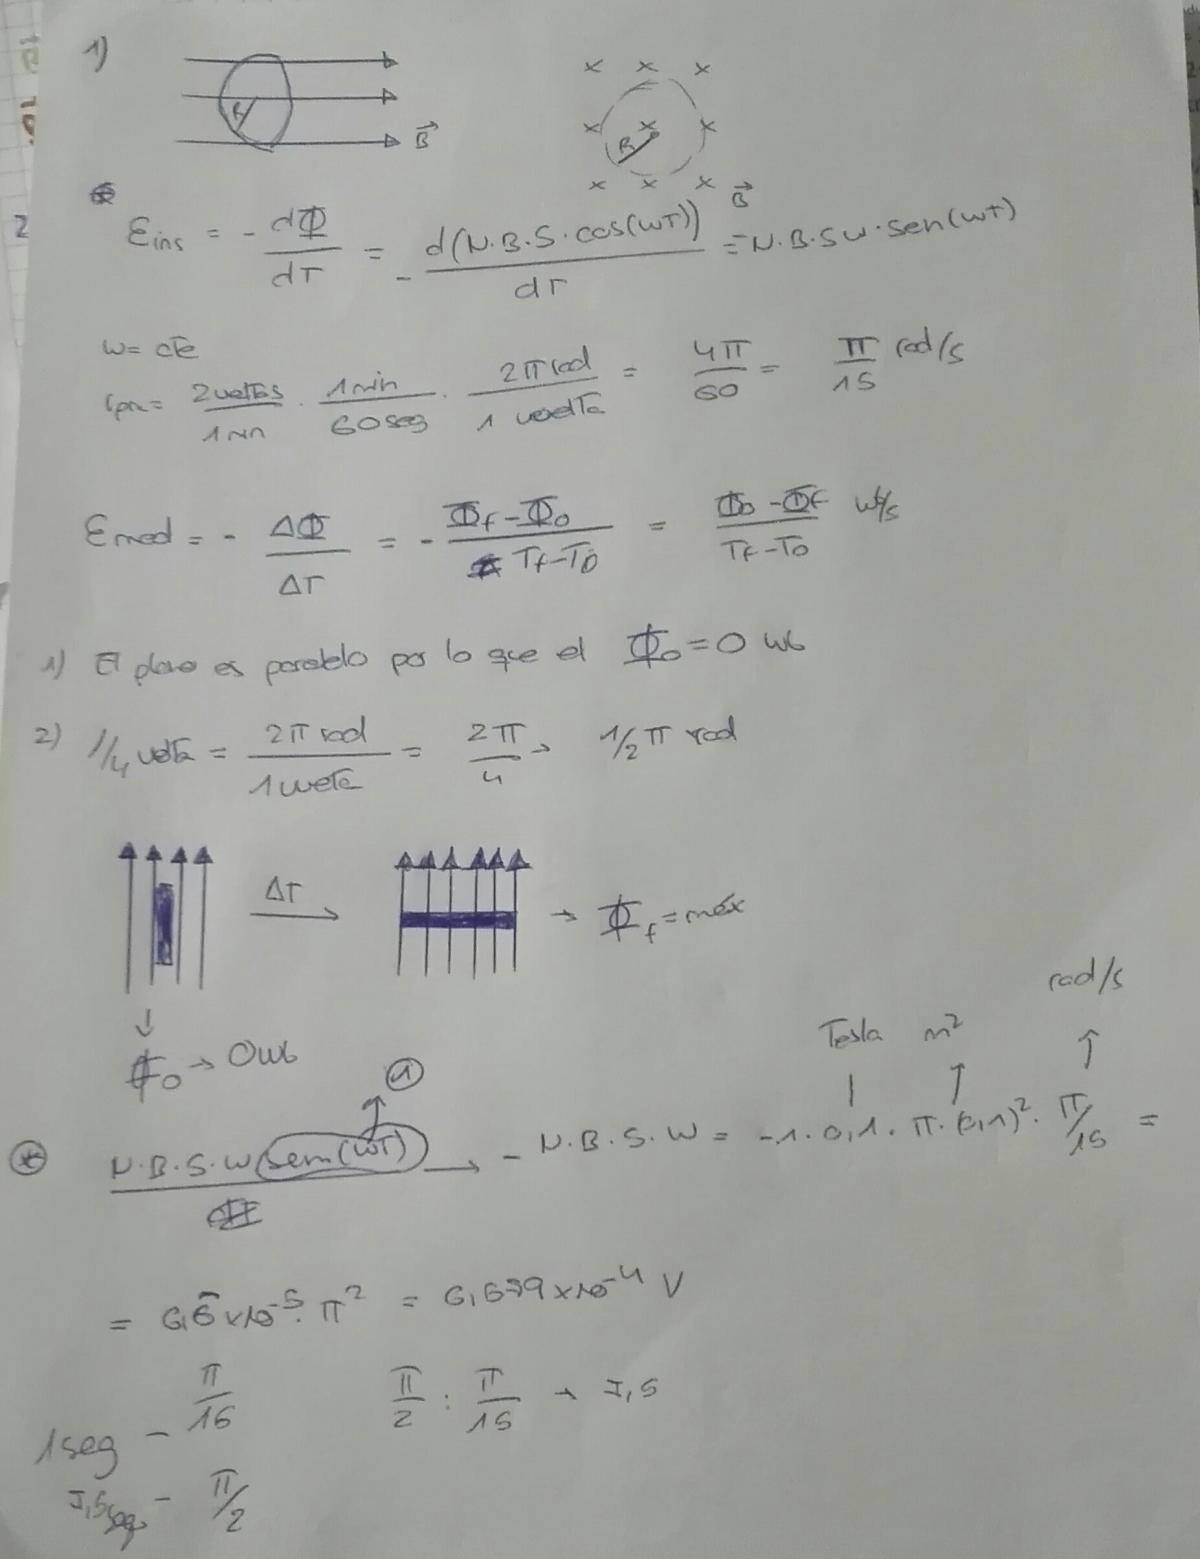 1)
R
B⃗
x x x
x x x
R
x x x B⃗
2
εins = - dΦ/dT = - d(N.B.S.cos(wT))/dT = N.B.S w.sen(wT)
w = cte
rpm = 2 vueltas/1 min . 1 min/60 seg . 2π rad/1 vuelta = 4π/60 = π/15 rad/s
εmed = - ΔΦ/ΔT = - Φf-Φo/Tf-To = Φo-Φf/Tf-To wb/s
1) El plano es paralelo por lo que el Φo = 0 wb
2) 1/4 vuelta = 2π rad/1 vuelta = 2π/4 → 1/2 π rad
ΔT → Φf = máx
Φo → 0 wb
1
Tesla m² rad/s
N.B.S.w sen(wT) → - N.B.S.w = -1.0,1.π.(0,1)².π/15 =
= 6,6 x10⁻⁵.π² = 6,579 x10⁻⁴ V
1 seg - π/15
π/2 : π/15 → 7,5
7,5 seg - π/2